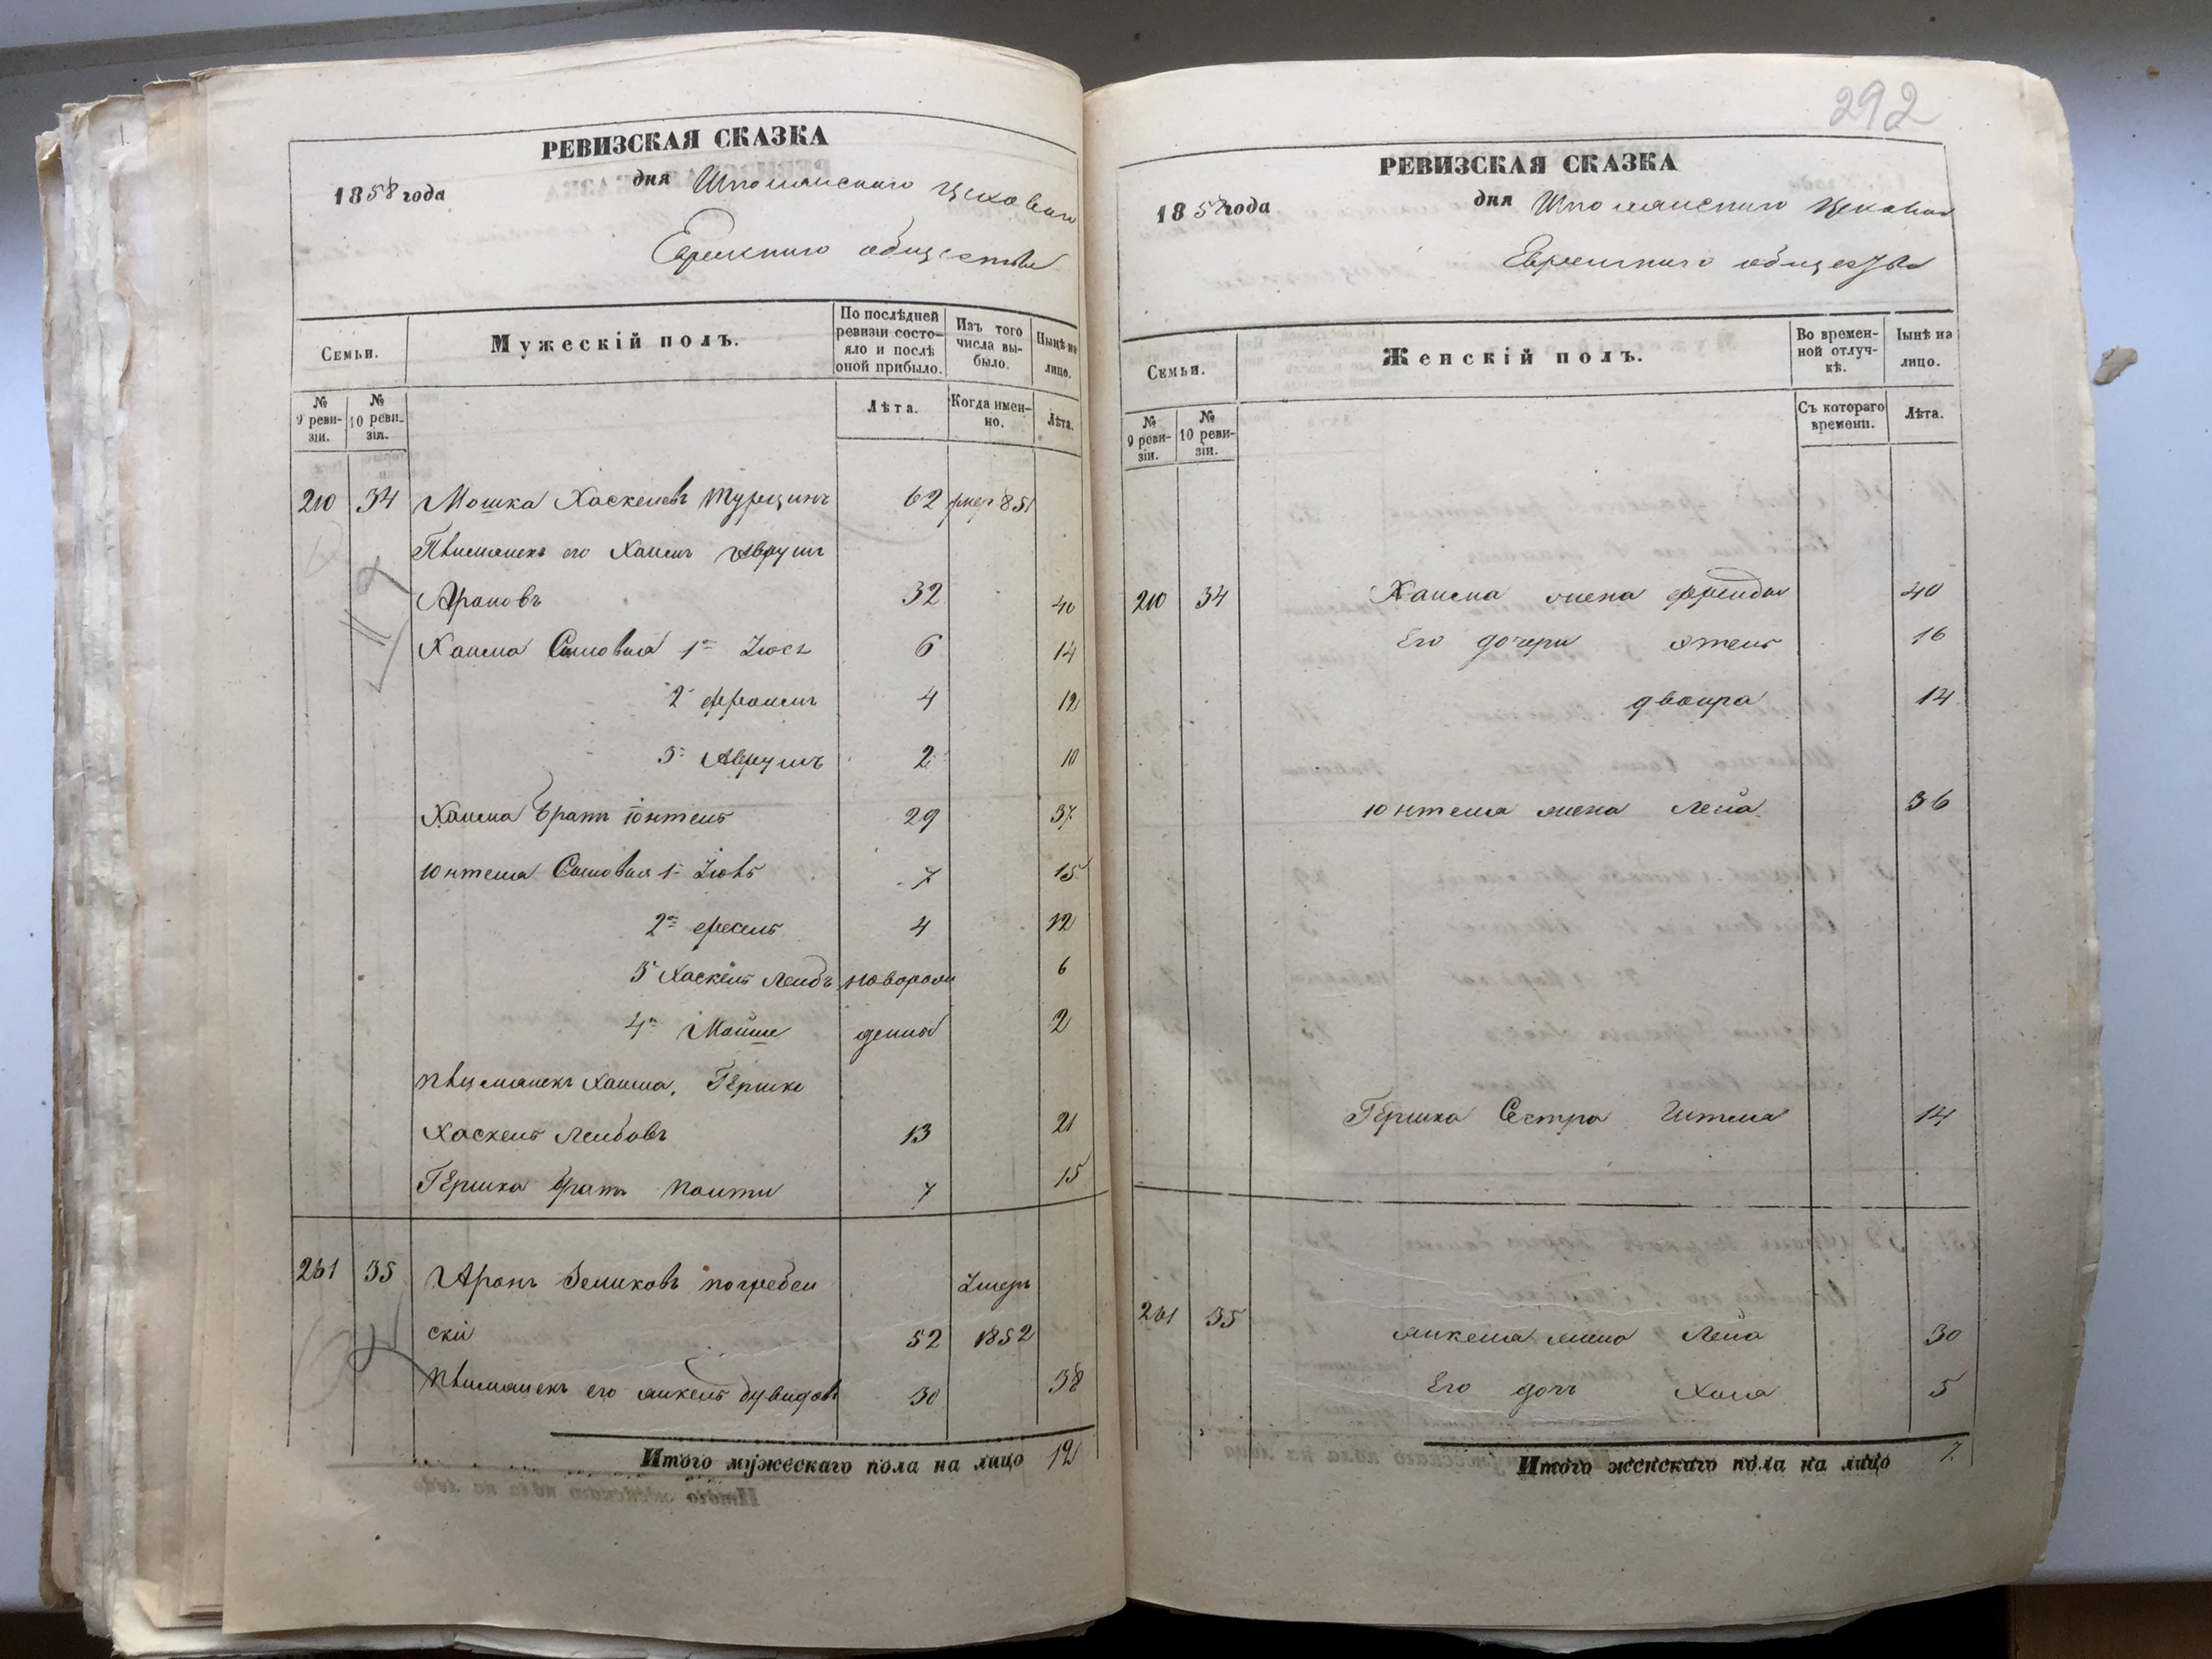 РЕВИЗСКАЯ СКАЗКА
1858 года дня Шполянскаго Цеховаго
Еврейскаго общества
Семьи. Мужескій полъ. По послѣдней ревизіи состояло и послѣ оной прибыло. Изъ того числа выбыло. Нынѣ на лицо.
№ 9 ревизіи. № 10 ревизіи. Лѣта. Когда именно. Лѣта.
210 34 Мошка Хаскелевъ Турчинъ 62 умер 851
Племянекъ его Хаимъ Аврум
Ароновъ 32 40
Хаима Сыновья 1й 6 14
2й Фроимъ 4 12
3й Аврумъ 2 10
Хаима Братъ Юнтель 29 37
Юнтеля Сыновья 1й 7 15
2й 4 12
3й Хаскель Лейбъ новорож 6
4й Мойше денный 2
племянекъ Хаима, Гершко
Хаскель Лейбовъ 13 21
Гершка братъ 7 15
261 35 Аронъ Зеликовъ погребен Умеръ
скій 52 1852
племянекъ его Янкель Дувидовъ 30 38
Итого мужескаго пола на лицо 12
292
РЕВИЗСКАЯ СКАЗКА
1858 года дня Шполянскаго Цеховаго
Еврейскаго общества
Семьи. Женскій полъ. Во временной отлучкѣ. Нынѣ на лицо.
№ 9 ревизіи. № 10 ревизіи. Съ котораго времени. Лѣта.
210 34 Хаима жена Фрейда 40
Его дочери Этель 16
Двойра 14
Юнтеля жена Лейа 36
Гершка Сестра Гитля 14
261 35 Янкеля жена Лейа 30
Его дочь Хана 5
Итого женскаго пола на лицо 7